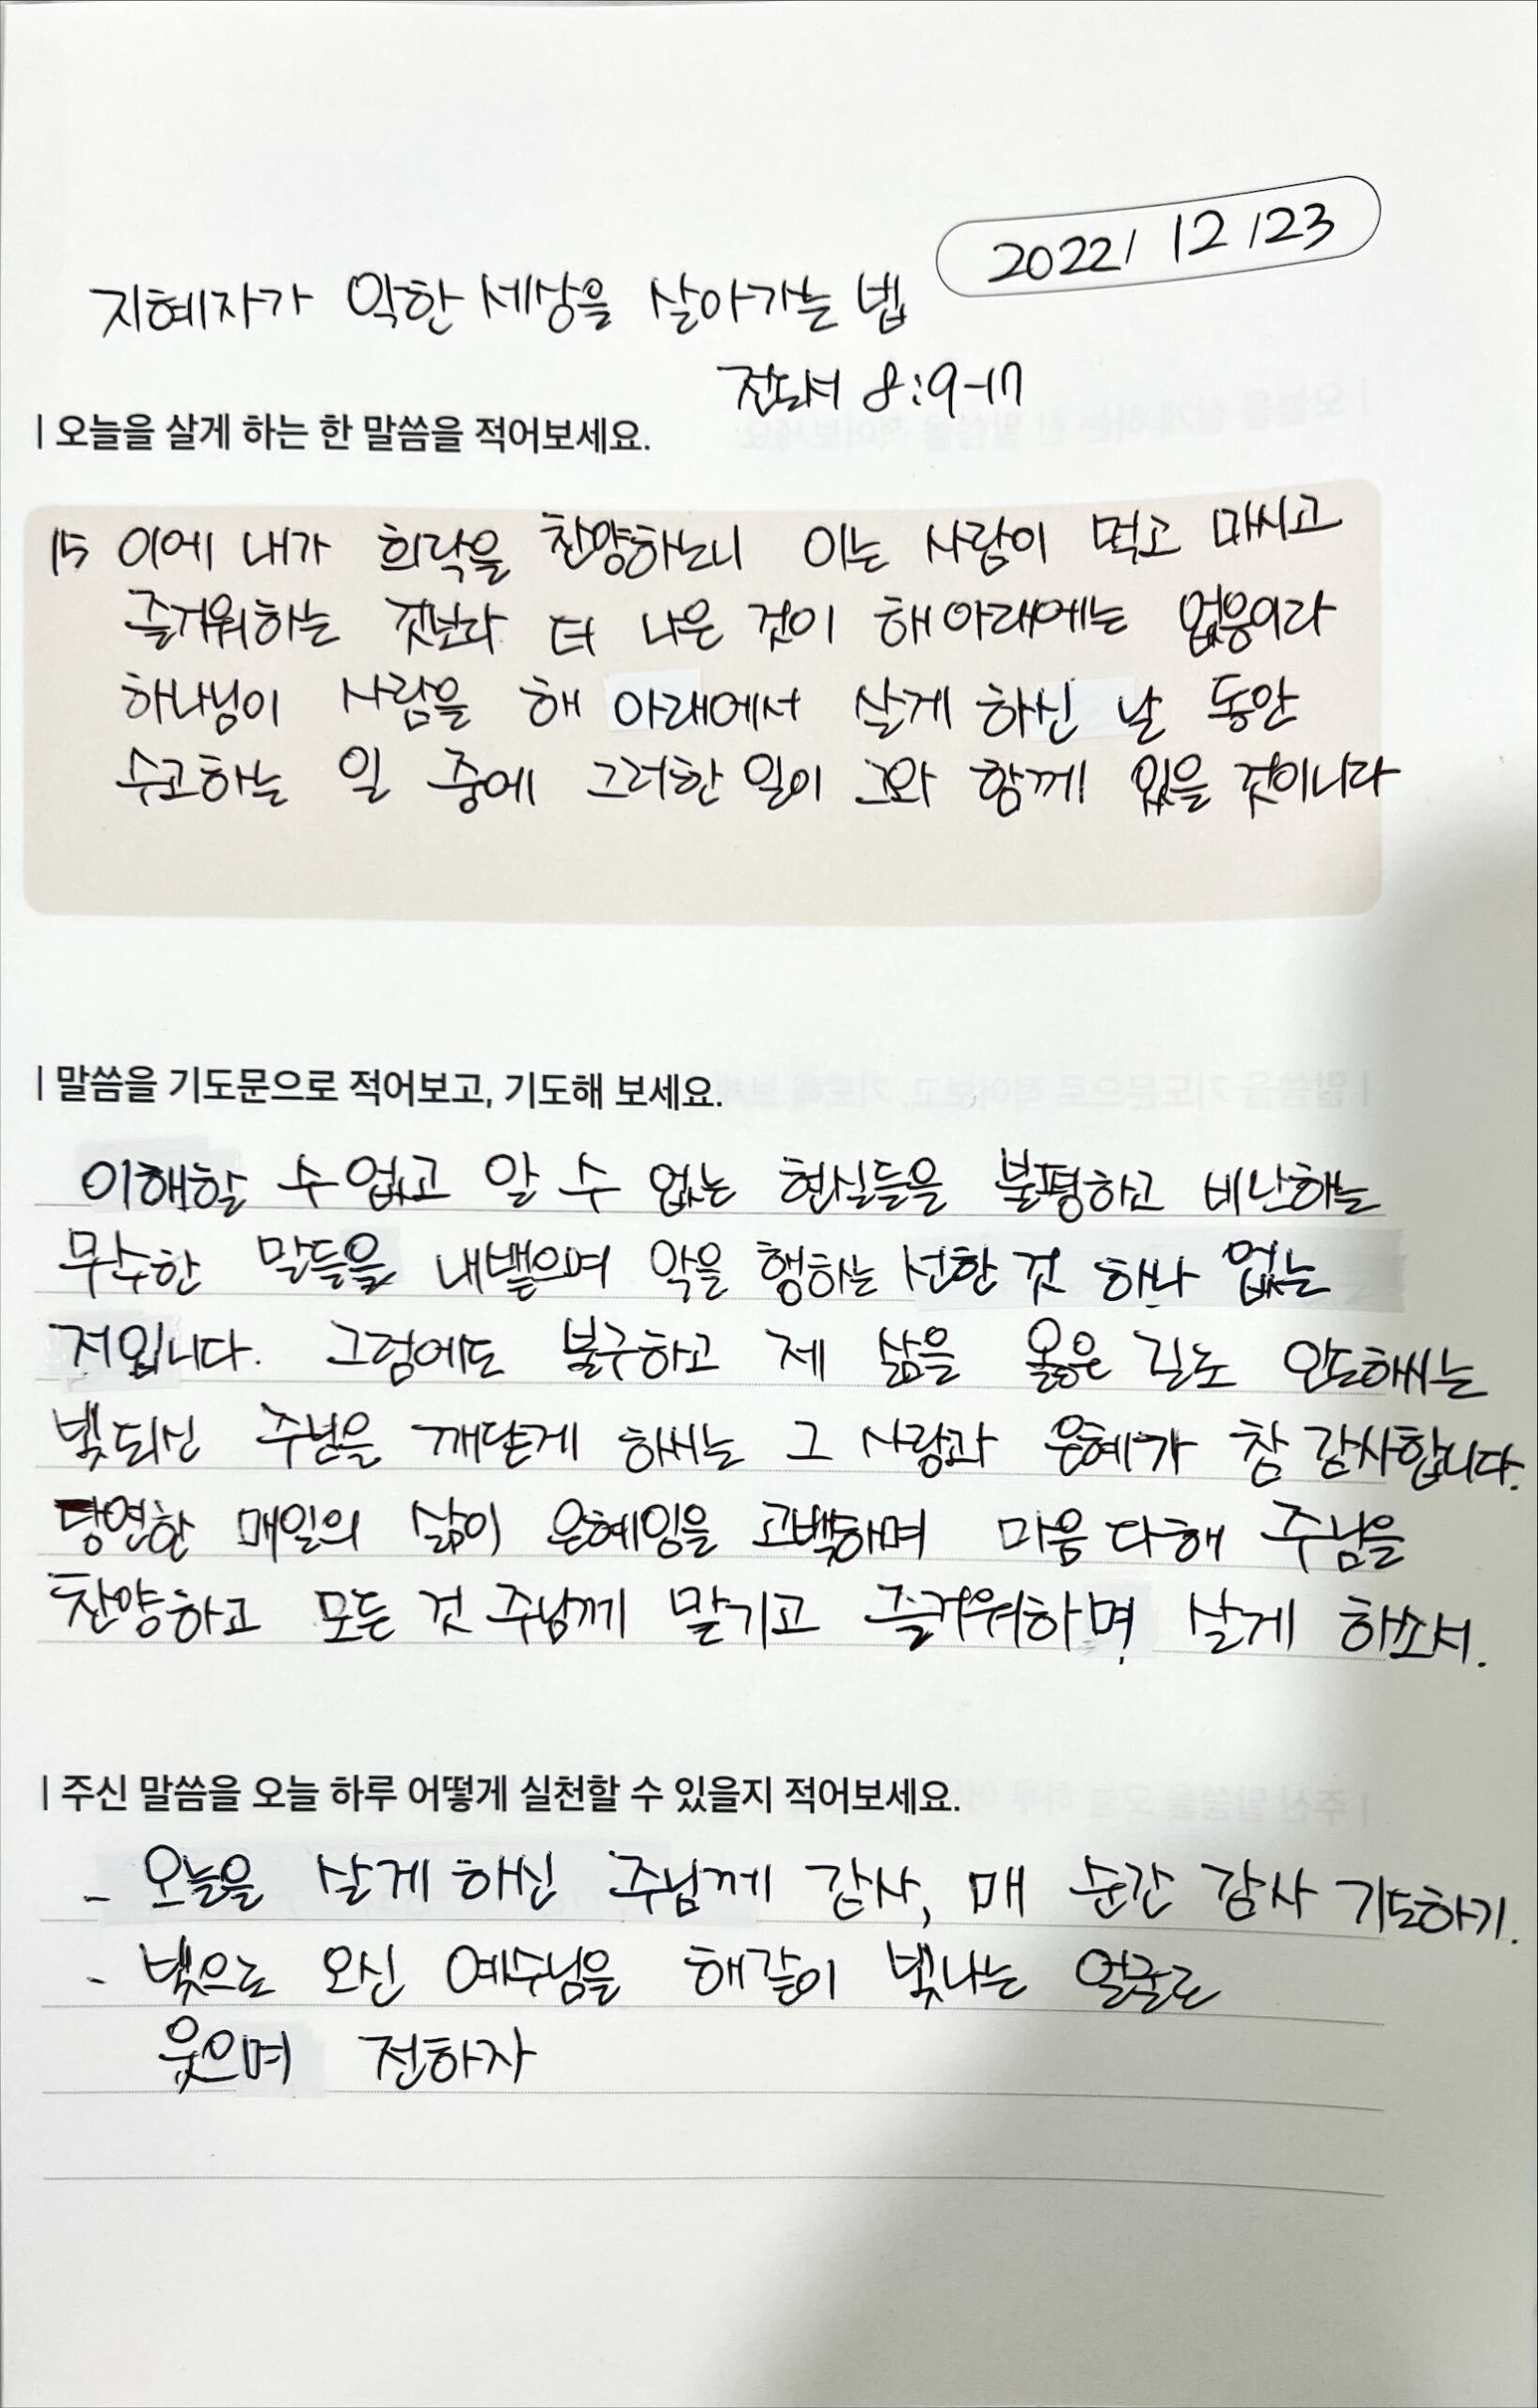 2022/ 12/23
지혜자가 악한 세상을 살아가는 법
전도서 8:9-17
| 오늘을 살게 하는 한 말씀을 적어보세요.
15 이에 내가 희락을 찬양하노니 이는 사람이 먹고 마시고
즐거워하는 것보다 더 나은 것이 해 아래에는 없음이라
하나님이 사람을 해 아래에서 살게 하신 날 동안
수고하는 일 중에 그러한 일이 그와 함께 있을 것이니라
| 말씀을 기도문으로 적어보고, 기도해 보세요.
이해할 수 없고 알 수 없는 현실들을 불평하고 비난하는
무수한 말들을 내뱉으며 악을 행하는 선한 것 하나 없는
저입니다. 그럼에도 불구하고 제 삶을 옳은 길로 인도하시는
빛되신 주님을 깨닫게 하시는 그 사랑과 은혜가 참 감사합니다.
당연한 매일의 삶이 은혜임을 고백하며 마음 다해 주님을
찬양하고 모든 것 주님께 맡기고 즐거워하며 살게 하소서.
| 주신 말씀을 오늘 하루 어떻게 실천할 수 있을지 적어보세요.
- 오늘을 살게 하신 주님께 감사, 매 순간 감사 기도하기.
- 빛으로 오신 예수님을 해같이 빛나는 얼굴로
웃으며 전하자